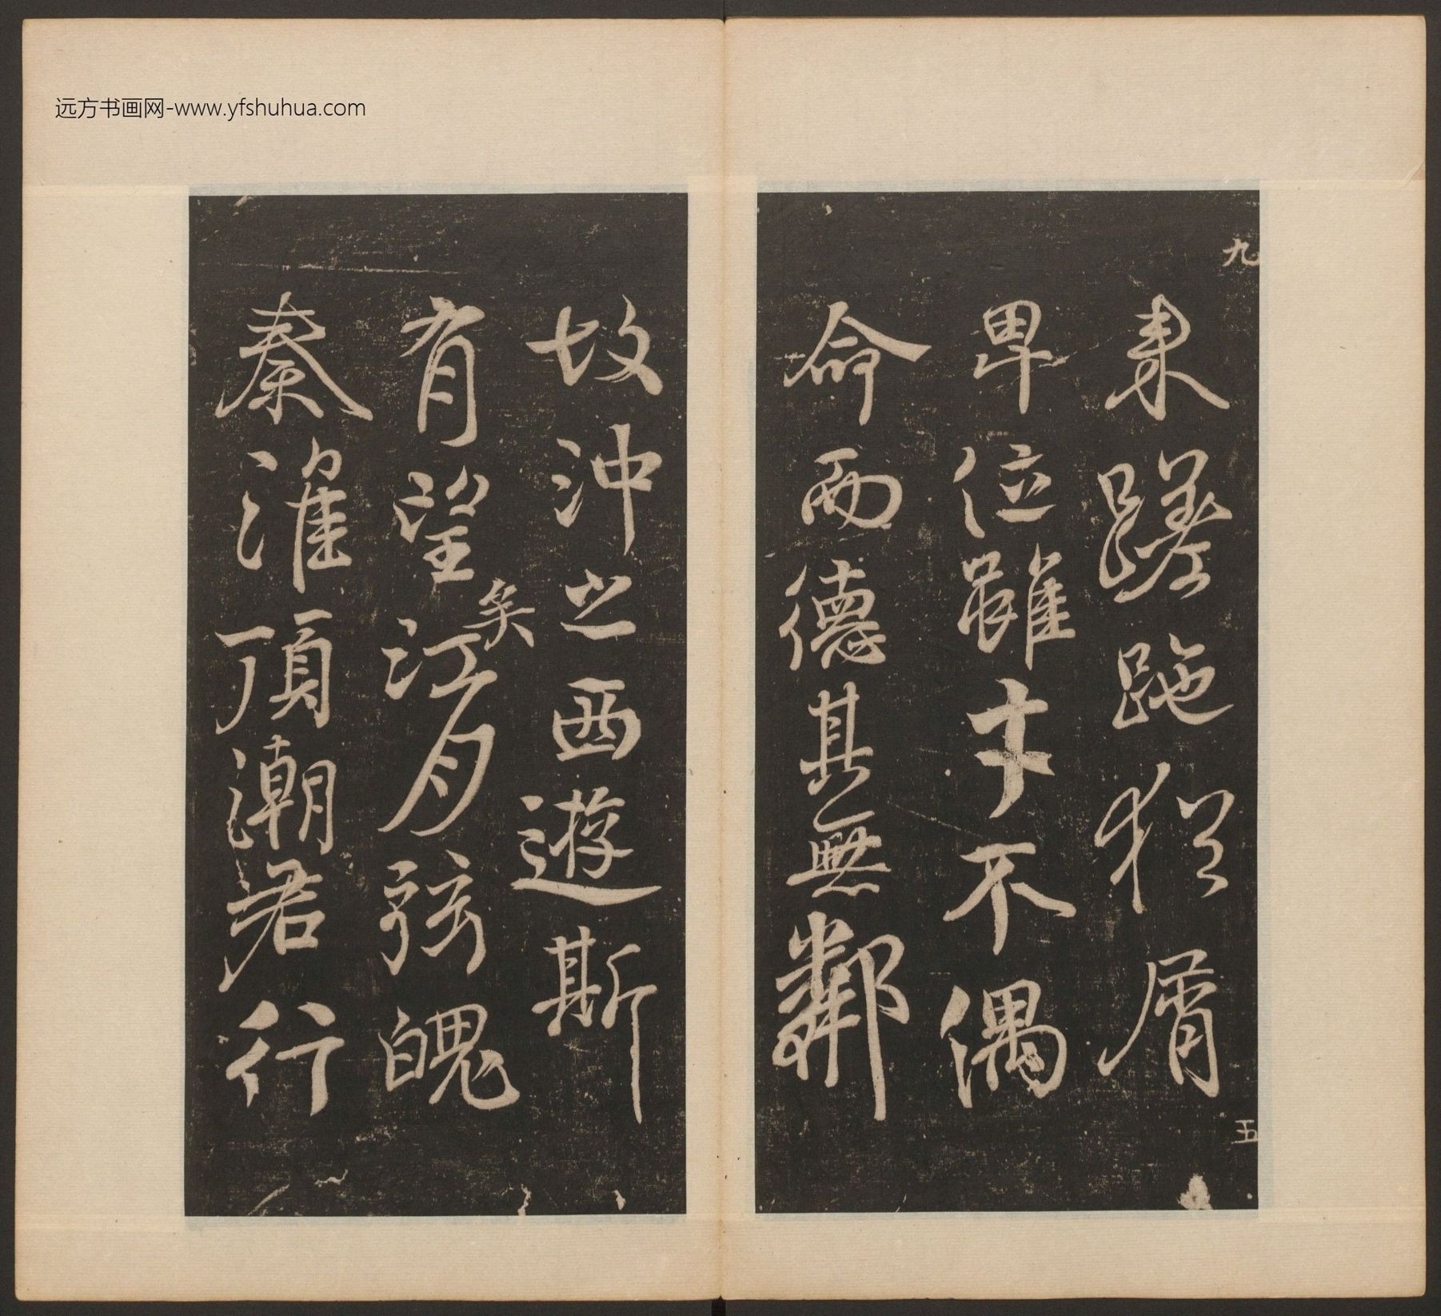 远方书画网-www.yfshuhua.com
九
来蹉跎犹屑
卑位雖才不偶
命而德其無鄰
五
故沖之西遊斯
有望矣江月弦魄
秦淮頂潮君行